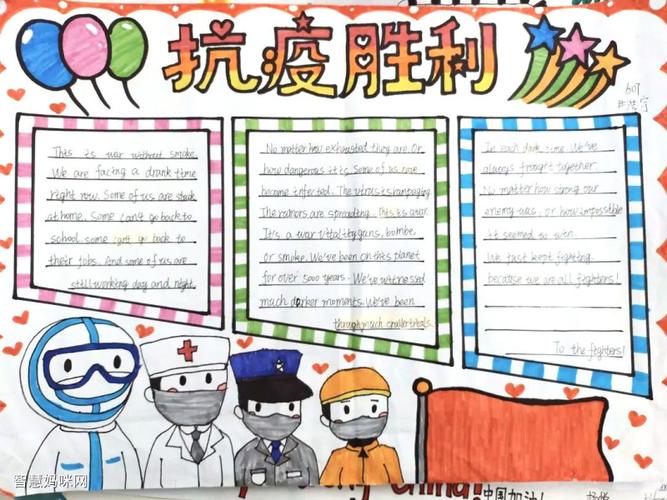 抗疫胜利
607
This is war without smoke.
We are facing a drank time
right now. Some of us are stuck
at home. Some can't go back to
school. some can't go back to
their jobs. And some of us are
still working day and night.
No matter how exhausted they are. Or
how dangerous it is. Some of us
become infected. The virus is rampaging
The rumors are spreading. This is a war.
It's a war guns, bombe,
or smoke. We've been on this planet
for over 5000 years. We've witnessed
much darker moments. We've been
through much crueller trials.
In each dark time. We've
always frought together
No matter how strong our
enemy was, or how impossible
it seemed to win.
We just kept fighting.
because we are all fighters!
To the fighters!
China!
中国加油!
智慧妈咪网